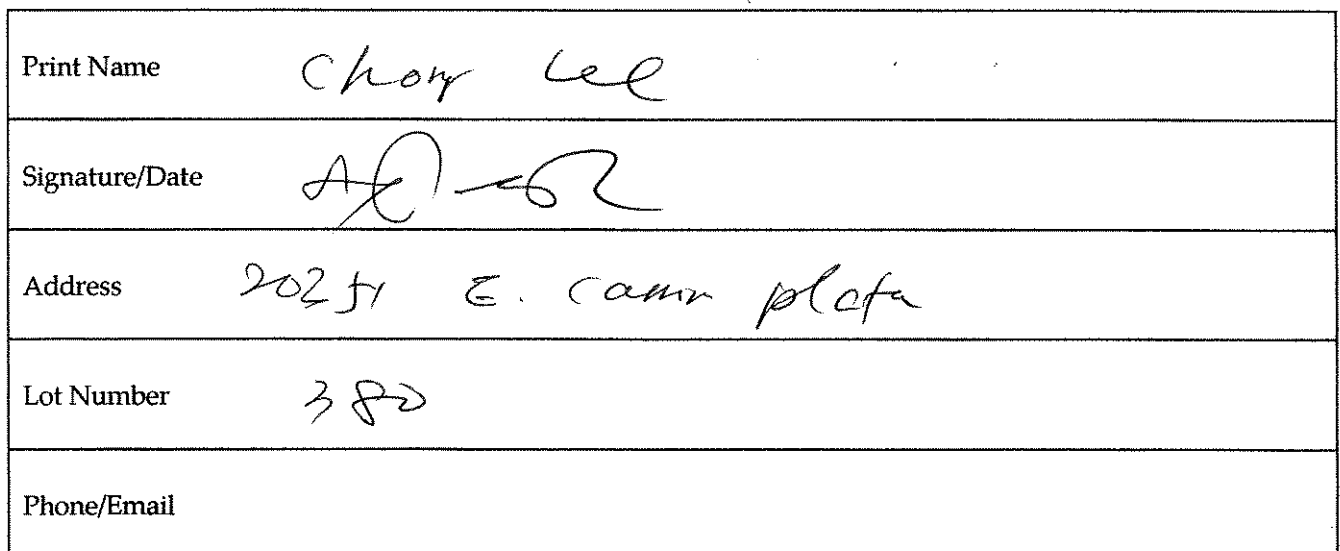 Print Name Chong Lee
Signature/Date
Address 20251 E. Camin plata
Lot Number 380
Phone/Email